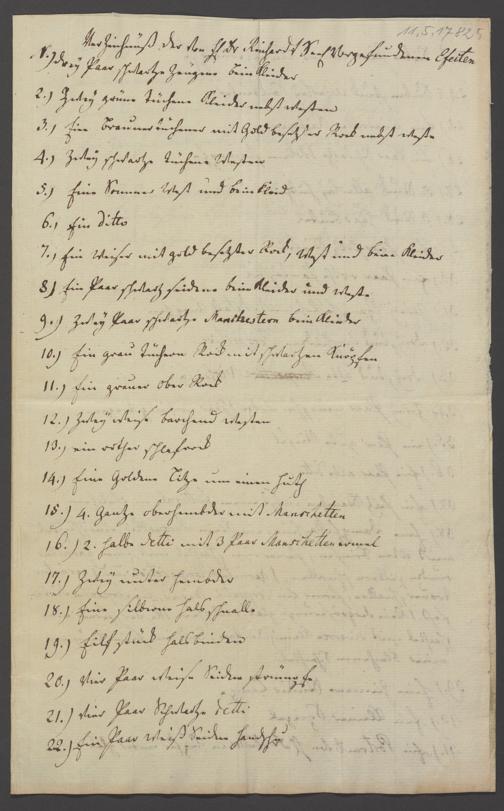 11.5.1782
Verzeichnüß der von H. Dr. Reinhardt Seel. Vorgefundenen Efeiten
1.) drey Paar schwartze Zeugene beinkleider
2.) Zwey grüne tüchene Kleider nebst westen
3.) Ein brauner tüchener mit Gold besetzter Rock nebst weste
4.) Zwey schwartze tüchene Westen
5.) Eine Sommer West und beinkleid
6.) Ein ditto
7.) Ein weiser mit gold besetzter Rock, West und bein Kleider
8.) Ein Paar schwartz seidene bein Kleider und weste
9.) Zwey Paar schwartze Manchestern beinKleider
10.) Ein grau tüchern Rock mit schwartzen Knöpfen
11.) Ein grauer ober Rock
12.) Zwey weise barchend westen
13.) ein rother schlafrock
14.) Eine Goldene Litze um einen huth
15.) 4. Gantze oberhembder mit Manschetten
16.) 2. halbe detti mit 3 Paar Manschetten ermel
17.) Zwey unter hembder
18.) Eine silberne halsschnalle
19.) Eilf stück halsbinden
20.) Vier Paar weise Seiden strümpfe
21.) Vier Paar Schwartze detti
22.) Ein Paar weiß Seiden handschu